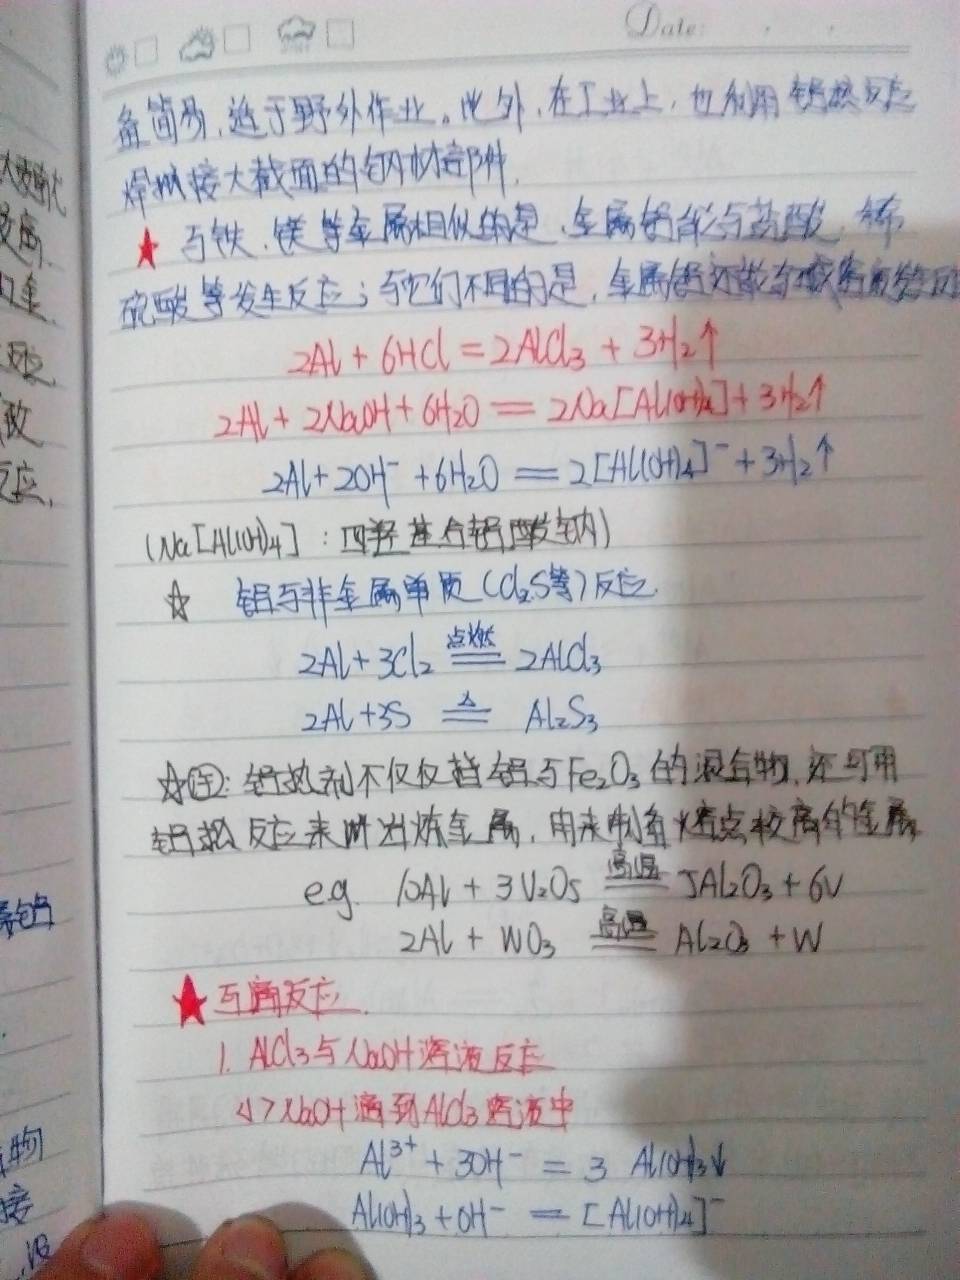 Date:
备简易,适于野外作业。此外,在工业上,也利用铝热反应
焊接大截面的钢材部件.
★ 与铁、镁等金属相似的是,金属铝能与盐酸、稀
硫酸等发生反应;与它们不同的是,金属铝还能与
2Al + 6HCl = 2AlCl₃ + 3H₂↑
2Al + 2NaOH + 6H₂O = 2Na[Al(OH)₄] + 3H₂↑
2Al + 2OH⁻ + 6H₂O = 2[Al(OH)₄]⁻ + 3H₂↑
(Na[Al(OH)₄] : 四羟基合铝酸钠)
☆ 铝与非金属单质(Cl₂.S等)反应.
点燃
2Al + 3Cl₂ = 2AlCl₃
△
2Al + 3S = Al₂S₃
☆注: 铝热剂不仅仅指铝与Fe₂O₃的混合物,还可用
铝热反应来冶炼金属,用来制备熔点较高的金属
高温
e.g. 10Al + 3V₂O₅ = 5Al₂O₃ + 6V
高温
2Al + WO₃ = Al₂O₃ + W
★互滴反应.
1. AlCl₃与NaOH溶液反应
<1>NaOH滴到AlCl₃溶液中
Al³⁺ + 3OH⁻ = 3 Al(OH)₃↓
Al(OH)₃ + OH⁻ = [Al(OH)₄]⁻